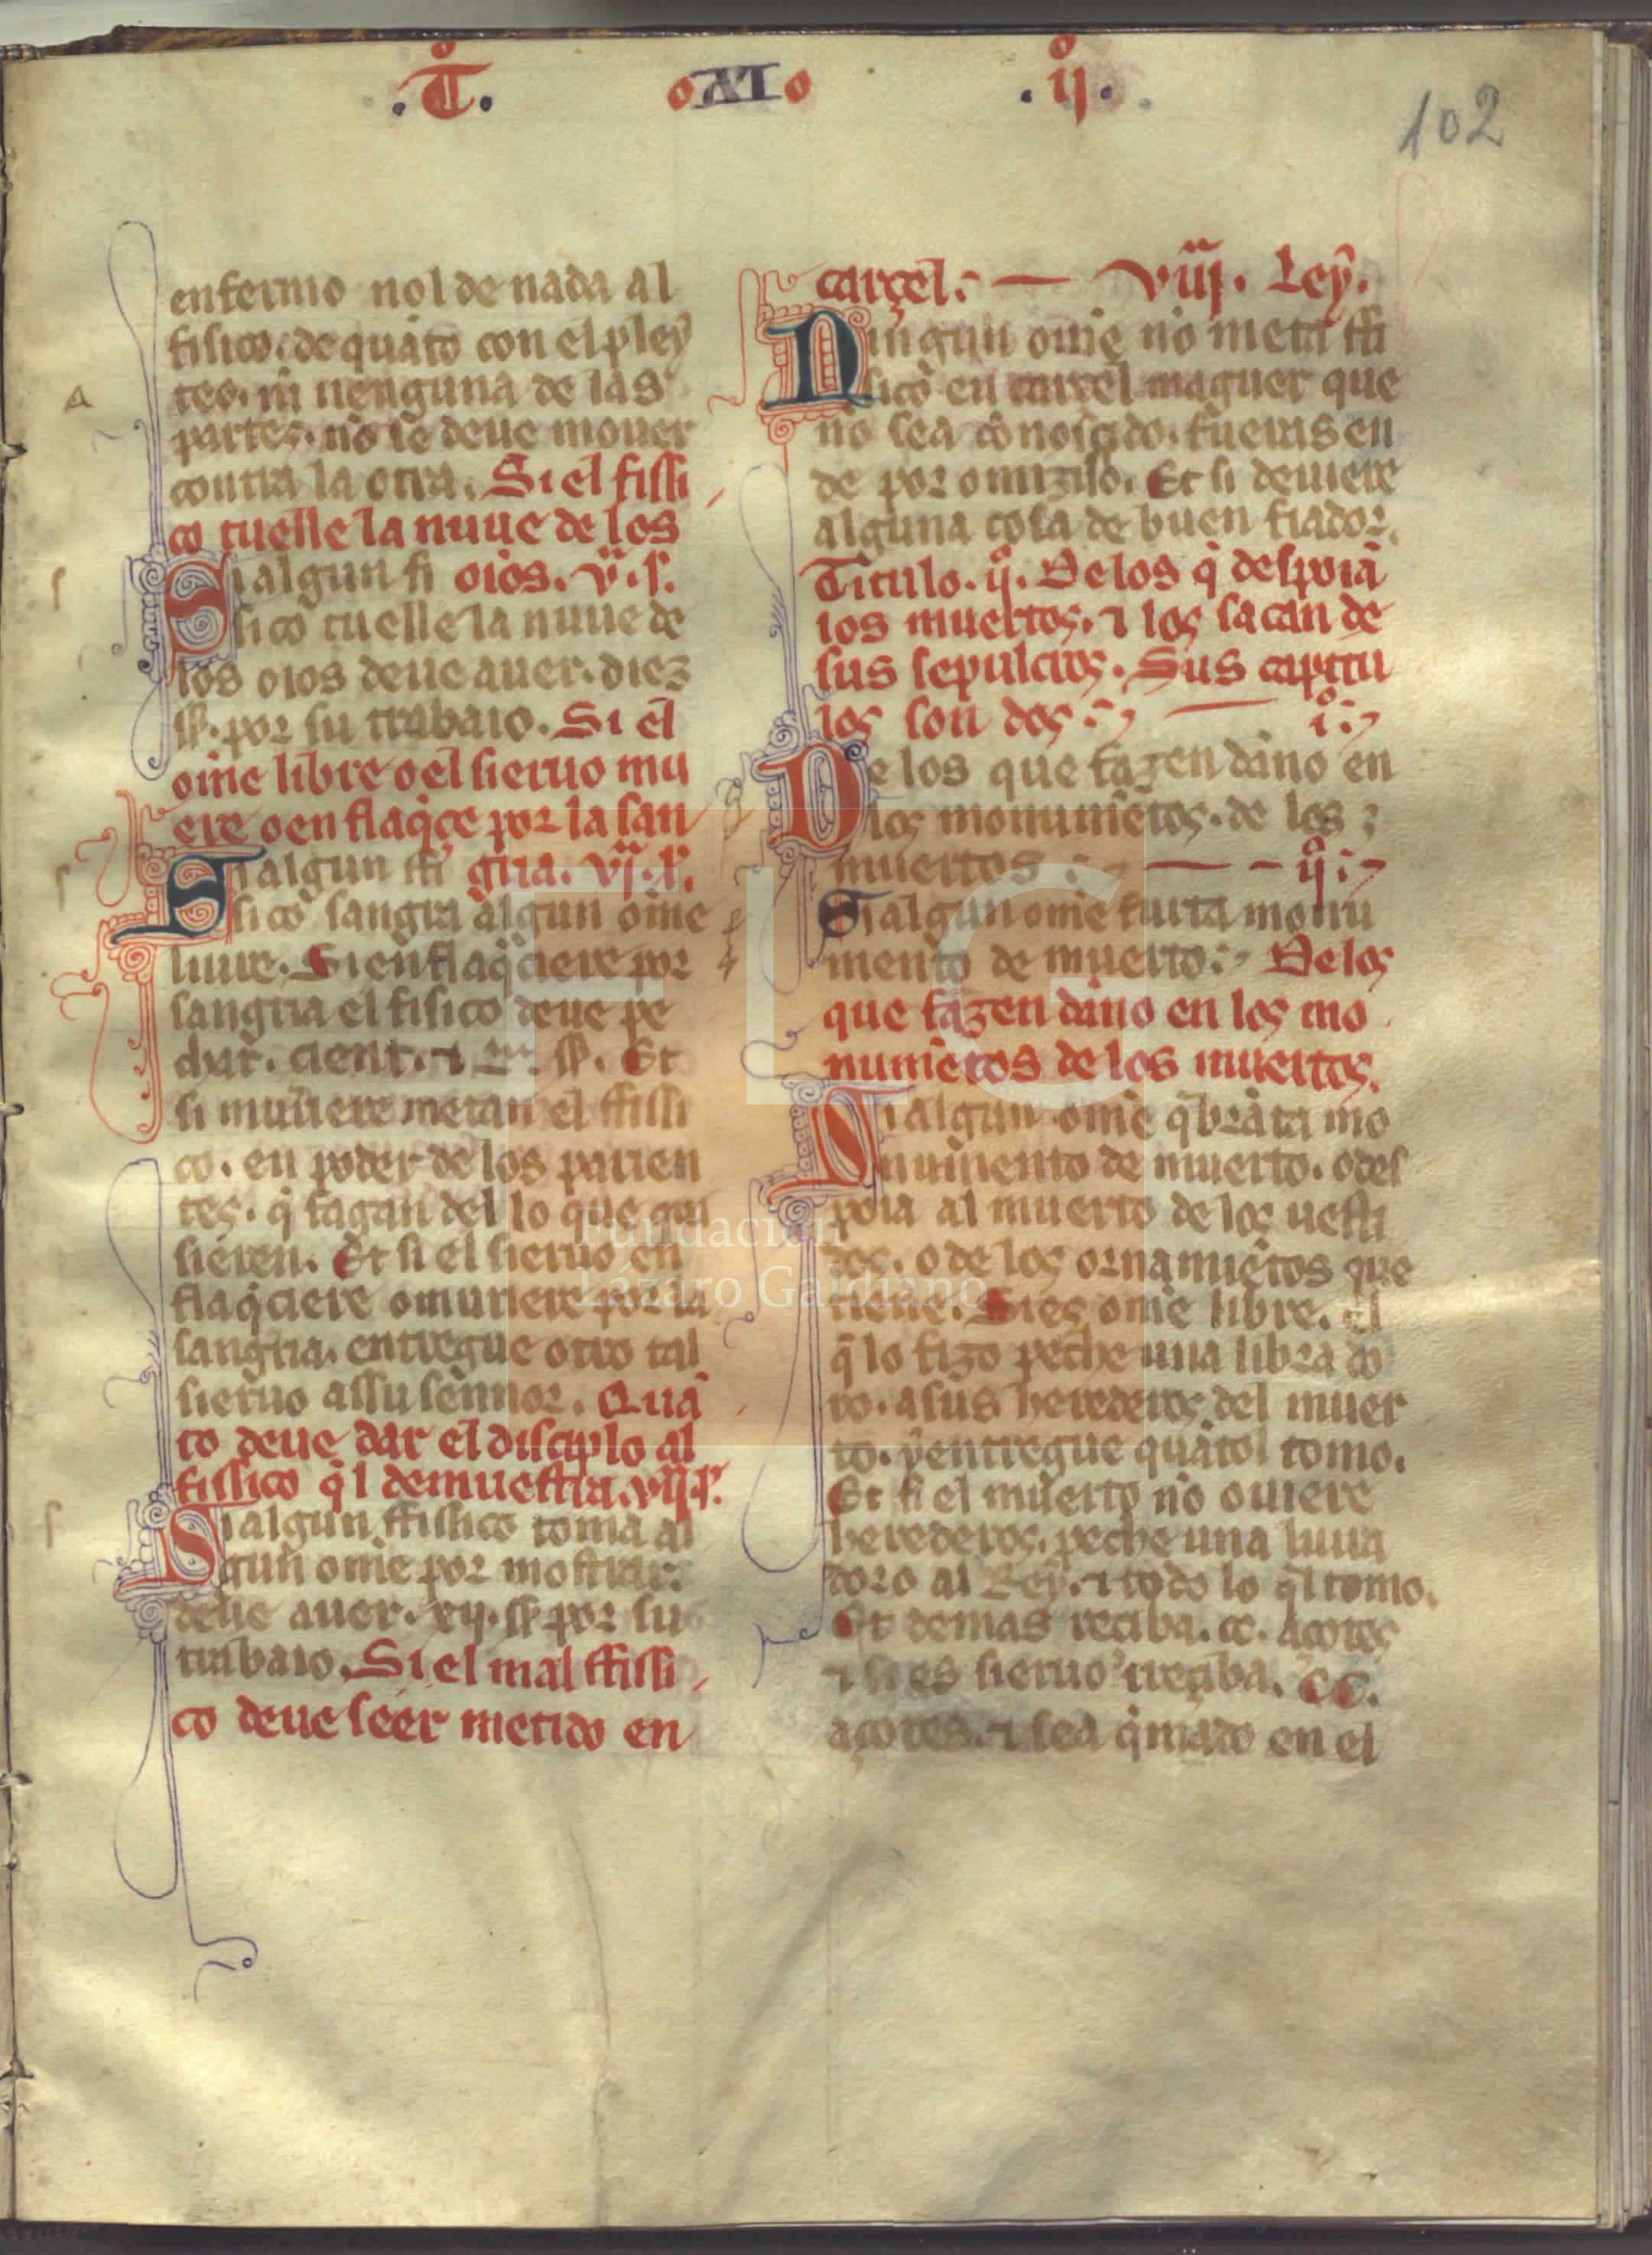 .T. o XI o .ij.
102
enfermo nol de nada al
fisico. de quãto con el pley
teo. nĩ nenguna de las
partes. nõ se deue mouer
contra la otra. Si el fissi
co tuelle la nuue de los
Si algun fi oios. v. l.
sico tuelle la nuue de
los oios deue auer. diez
ss. por su trabaio. Si el
ome libre o el sieruo mu
ere o en flaq̃çe por la san
Si algun ffi gria. vj. l.
sico sangra algun ome
liure. Si enflaq̃ciere por
sangria el fisico deue pe
char. cient. ⁊ L. ss. Et
si muriere metan el ffissi
co. en poder de los parien
tes. q̃ fagan del lo que qui
sieren. Et si el sieruo en
flaq̃ciere o muriere por la
sangria. entregue otro tal
sieruo assu sennor. Quã
to deue dar el disciplo al
fissico q̃l demuestra. vij. l.
Si algun ffissico toma al
gun ome por mostrar.
deue auer. xij. ss. por su
trabaio. Si el mal ffissi
co deue seer metido en
carçel. viij. Ley.
Ningun ome nõ meta ffi
sico en carcel maguer que
no sea cõnosçido. fueras en
de por omizilio. Et si deuiere
alguna cosa de buen fiador.
Titulo. ij. De los q̃ despoiã
los muertos. ⁊ los sacan de
sus sepulcros. Sus capitu
los son dos: i.
De los que fazen dãno en
los monumẽtos. de los
muertos: ij.
Si algun ome furta monu
mento de muerto: De los
que fazen dãno en los mo
numẽtos de los muertos.
Si algun ome q̃brãta mo
numento de muerto. o des
poia al muerto de los uesti
dos. o de los ornamiẽtos que
tiene. Si es ome libre. el
q̃ lo fizo peche una libra do
ro. a sus herederos del muer
to. y entregue quãtol tomo.
Et si el muerto nõ ouiere
herederos. peche una liura
doro al Rey. ⁊ todo lo q̃l tomo.
Et demas reciba. cc. acotes
⁊ si es sieruo reçiba. CC.
açotes. ⁊ sea q̃mado en el
FLG
Fundación
Lázaro Galdiano